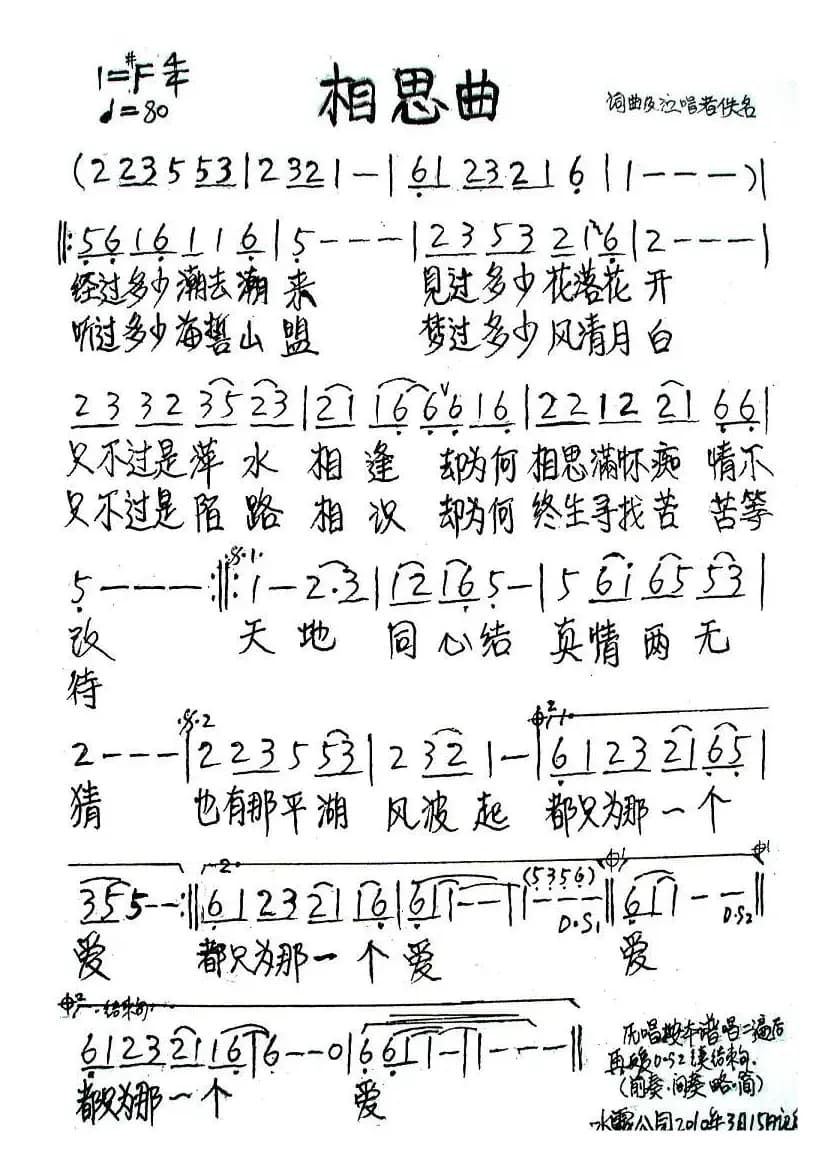 1=#F 4/4
♩=80
相思曲
词曲及泣唱者佚名
(2 2 3 5 5 3 | 2 3 2 1 — | 6 1 2 3 2 1 6 | 1 — — — )|
‖: 5 6 1 6 1 1 6 | 5 — — — | 2 3 5 3 2 1 6 | 2 — — — |
经过多少潮去潮来 见过多少花落花开
听过多少海誓山盟 梦过多少风清月白
2 3 3 2 3 5 2 3 | 2 1 1 6 6 6 1 6 | 2 2 1 2 2 1 6 6 |
只不过是萍水相逢 却为何相思满怀痴情不
只不过是陌路相识 却为何终生寻找苦苦等
5 — — — :‖: 1 — 2 · 3 | 1 2 1 6 5 — | 5 6 i 6 5 5 3 |
改 天地同心结 真情两无
待
2 — — — | 2 2 3 5 5 3 | 2 3 2 1 — | 6 1 2 3 2 1 6 5 |
猜 也有那平湖风波起 都只为那一个
3 5 5 — — :‖ 6 1 2 3 2 1 1 6 | 6 1 1 — — | 1 — — — (5 3 5 6) D.S1 ‖ 6 1 1 — — D.S2 ‖
爱 都只为那一个爱 爱
结束句
6 1 2 3 2 1 1 6 | 6 — — 0 | 6 6 1 1 — | 1 — — — ‖
都只为那一个 爱
唱按本谱唱二遍后
再D.S2结束句.
(前奏.间奏略.简)
水露公园2010年3月15日记